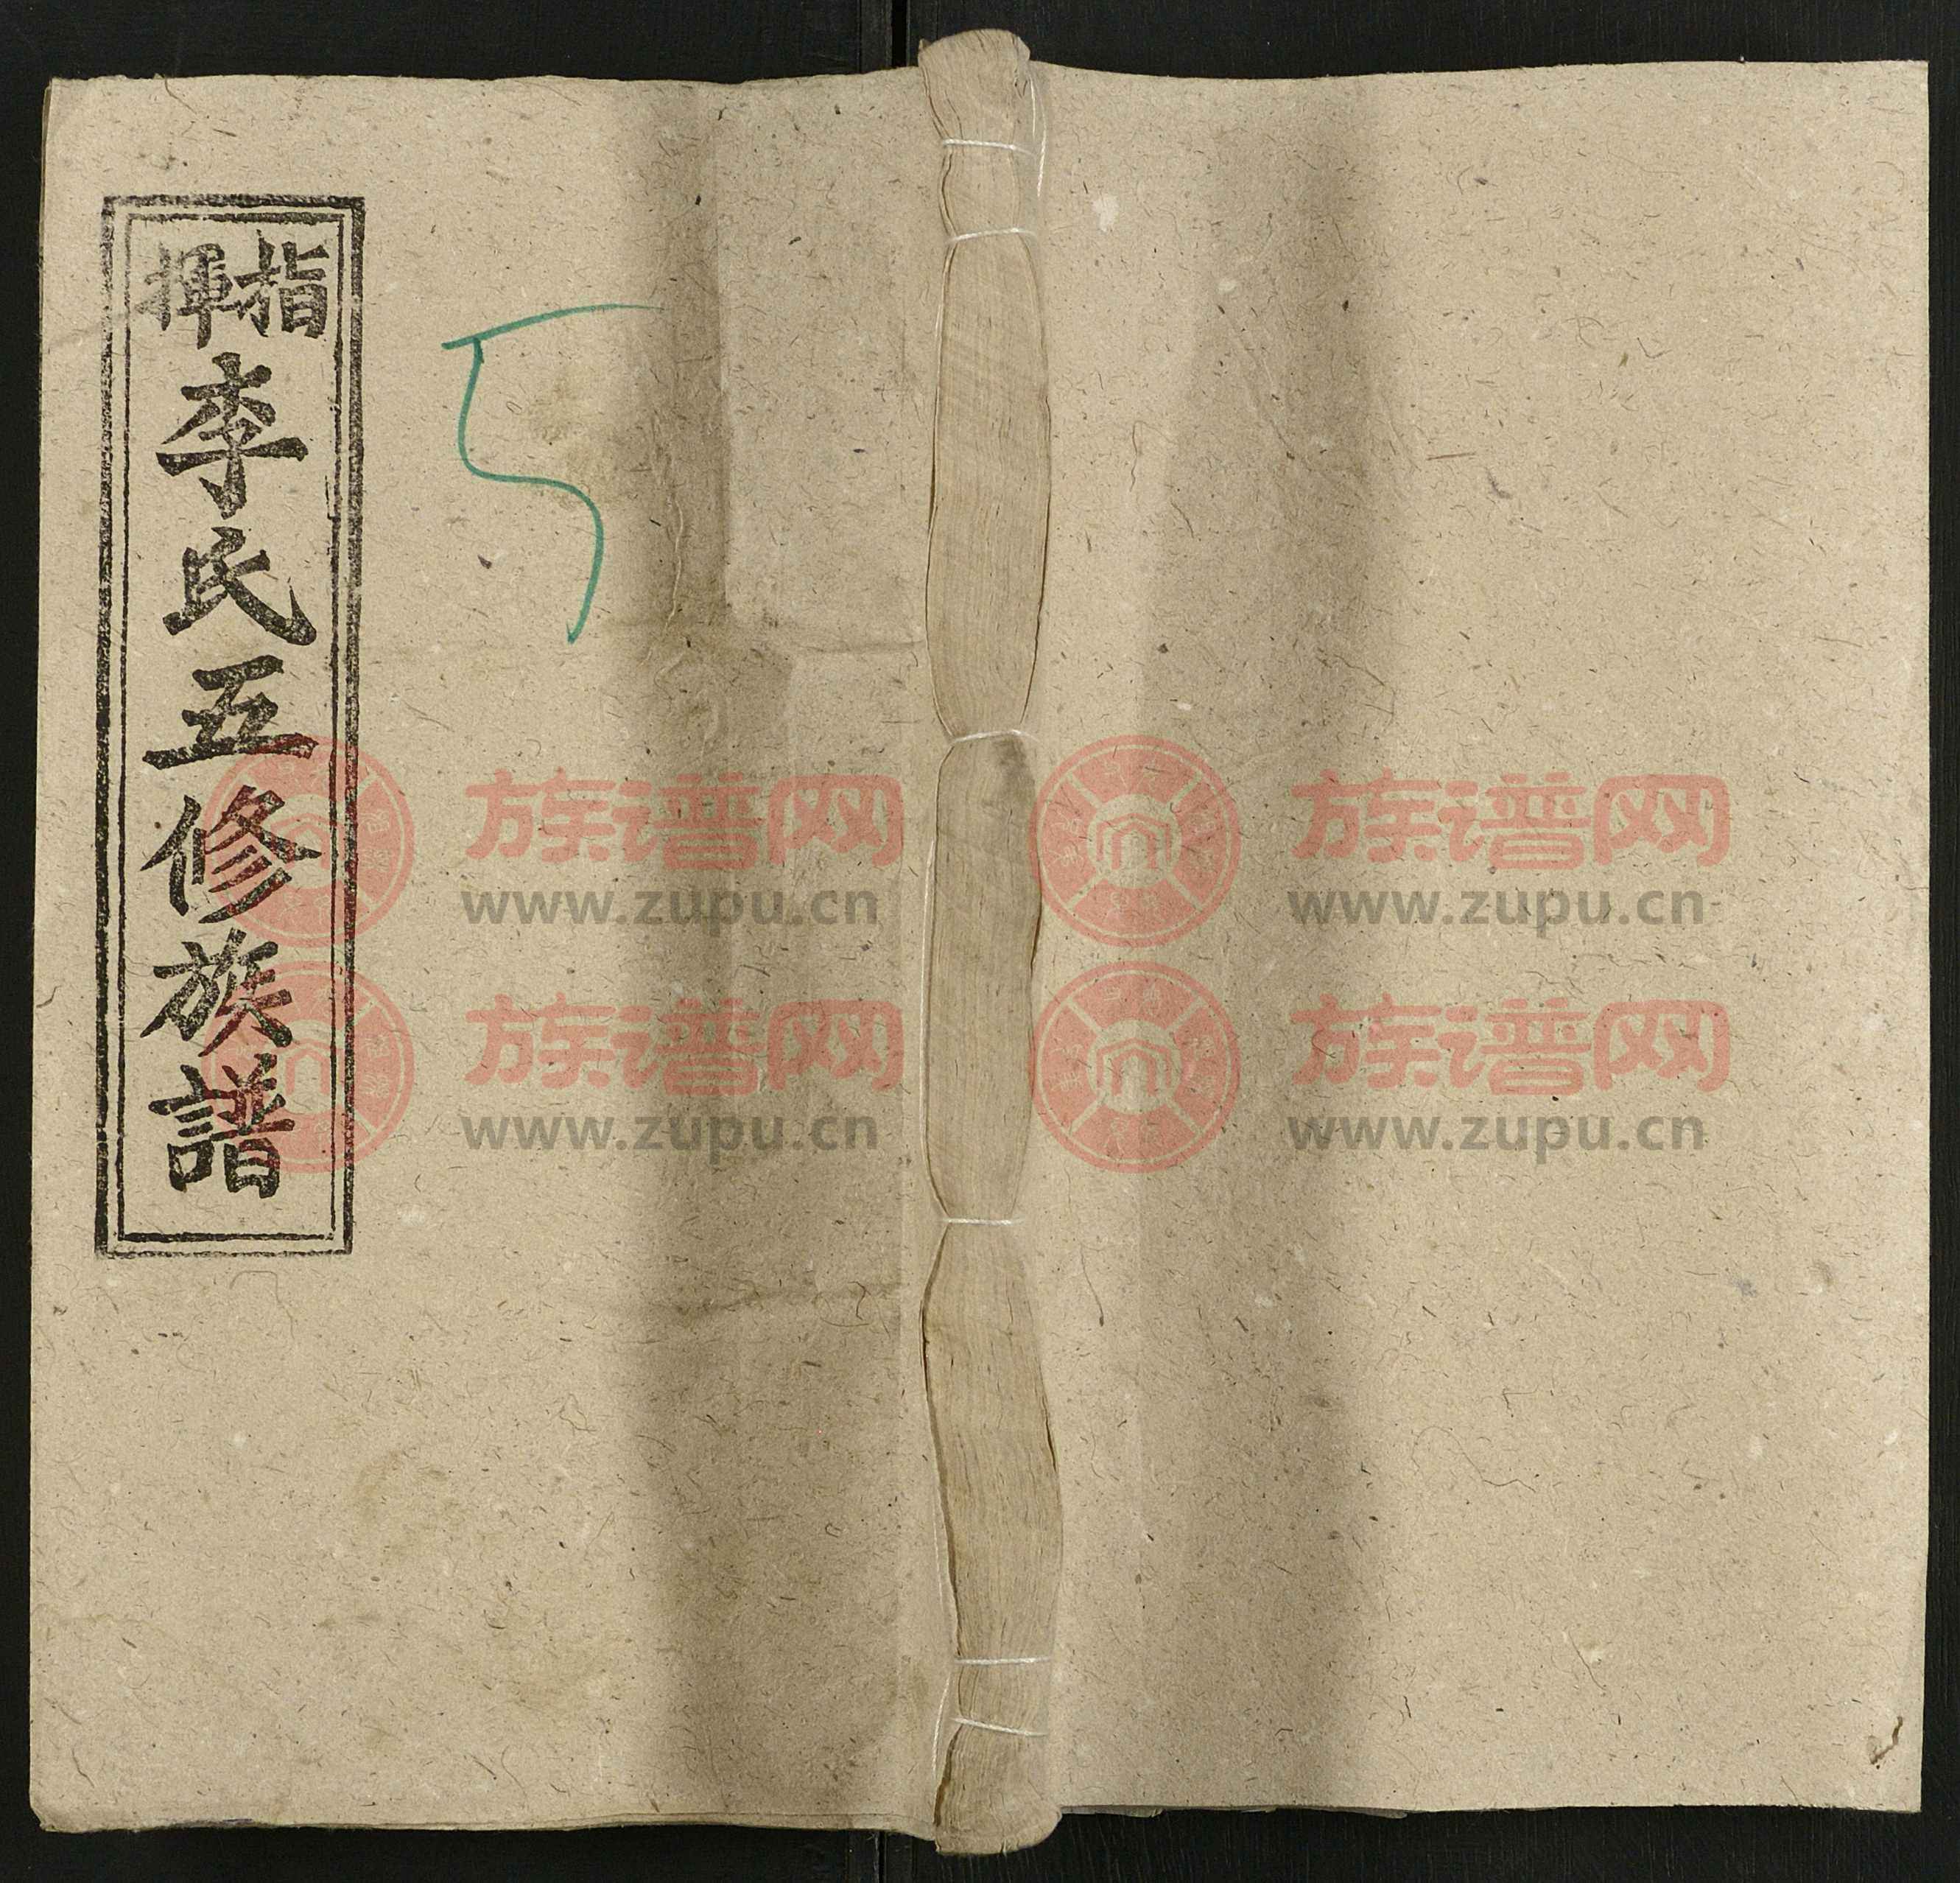 指揮
李氏五修族譜
5
族谱网 族谱网
www.zupu.cn www.zupu.cn
族谱网 族谱网
www.zupu.cn www.zupu.cn